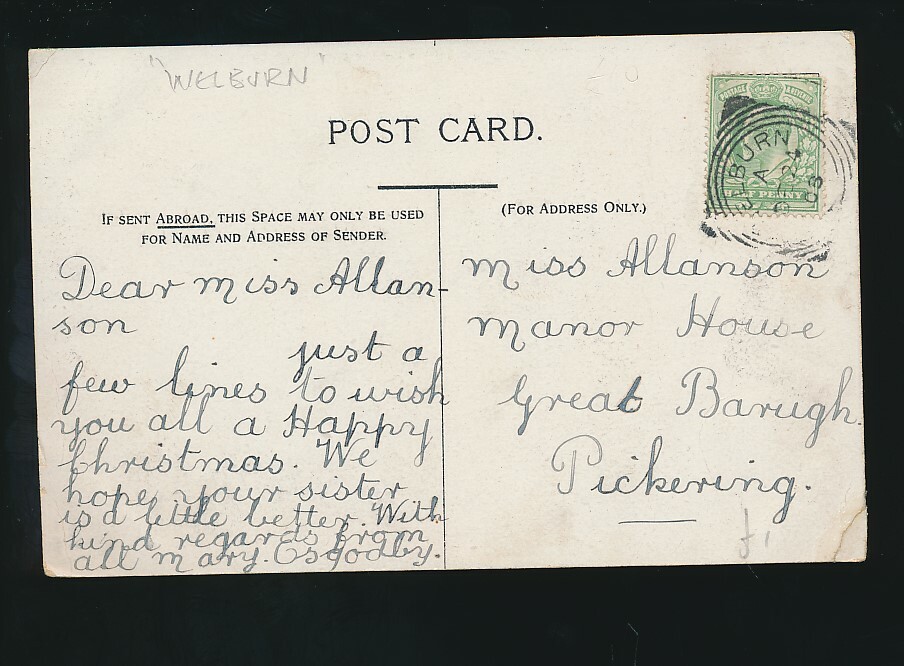 "WELBURN"
POST CARD.
IF SENT ABROAD, THIS SPACE MAY ONLY BE USED
FOR NAME AND ADDRESS OF SENDER.
(FOR ADDRESS ONLY.)
Dear miss Allan-
son
just a
few lines to wish
you all a Happy
Christmas. We
hope your sister
is a little better. With
kind regards from
all mary. Osgodby.
miss Allanson
manor House
Great Barugh.
Pickering.
POSTAGE REVENUE
HALF PENNY
BURN
A
24
03
£1